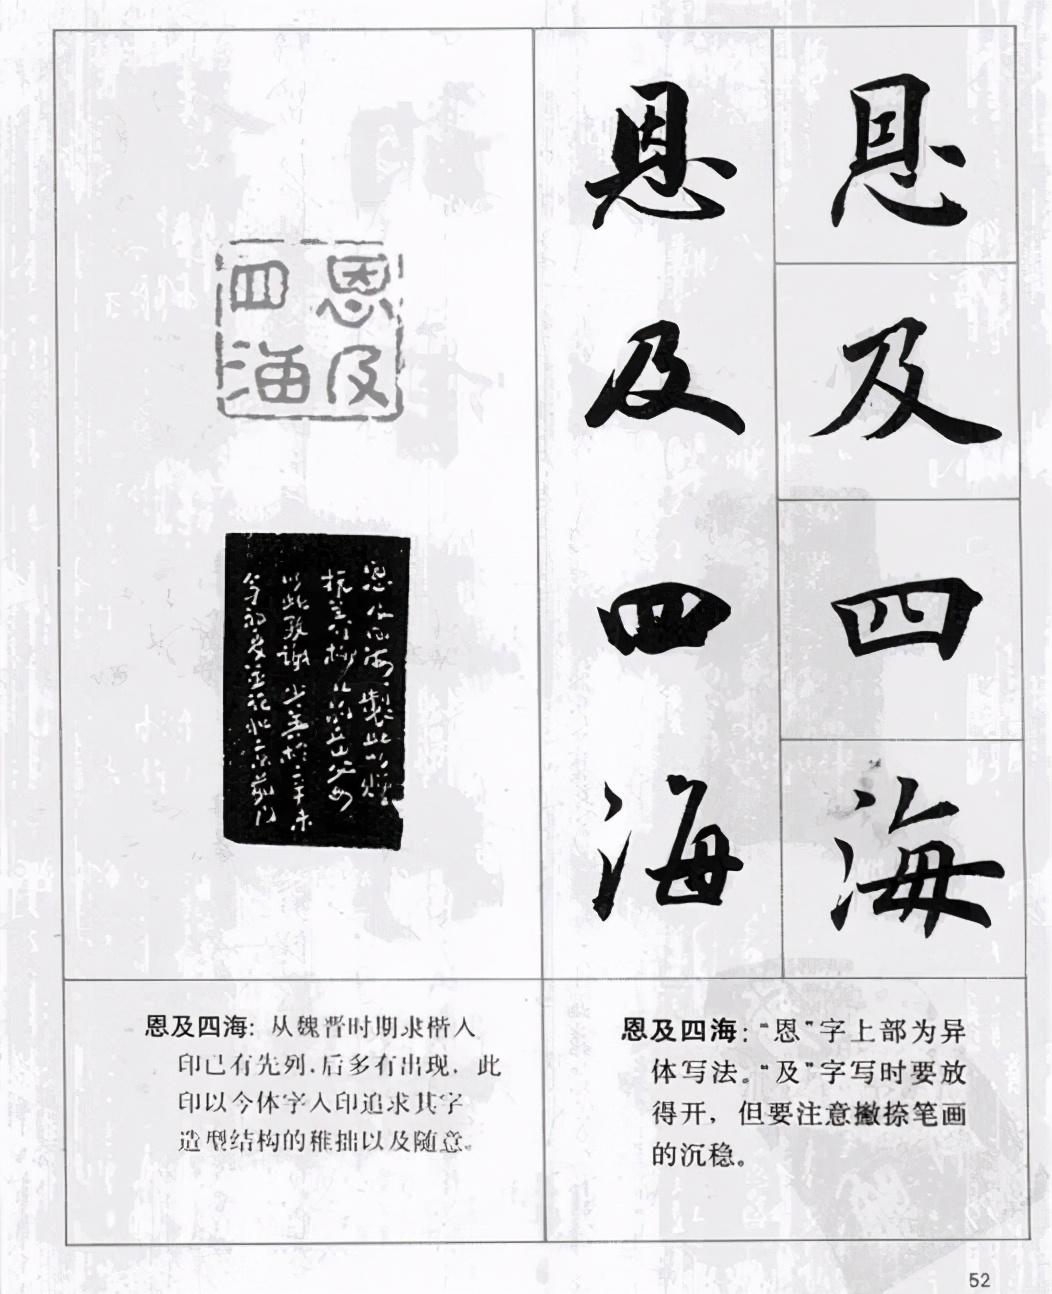 恩及四海
恩及四海
恩及
四海
恩及四海製此以
以此致謝
辛未
恩及四海：从魏晋时期隶楷入
印已有先列，后多有出现，此
印以今体字入印追求其字
造型结构的稚拙以及随意。
恩及四海：“恩”字上部为异
体写法。“及”字写时要放
得开，但要注意撇捺笔画
的沉稳。
52